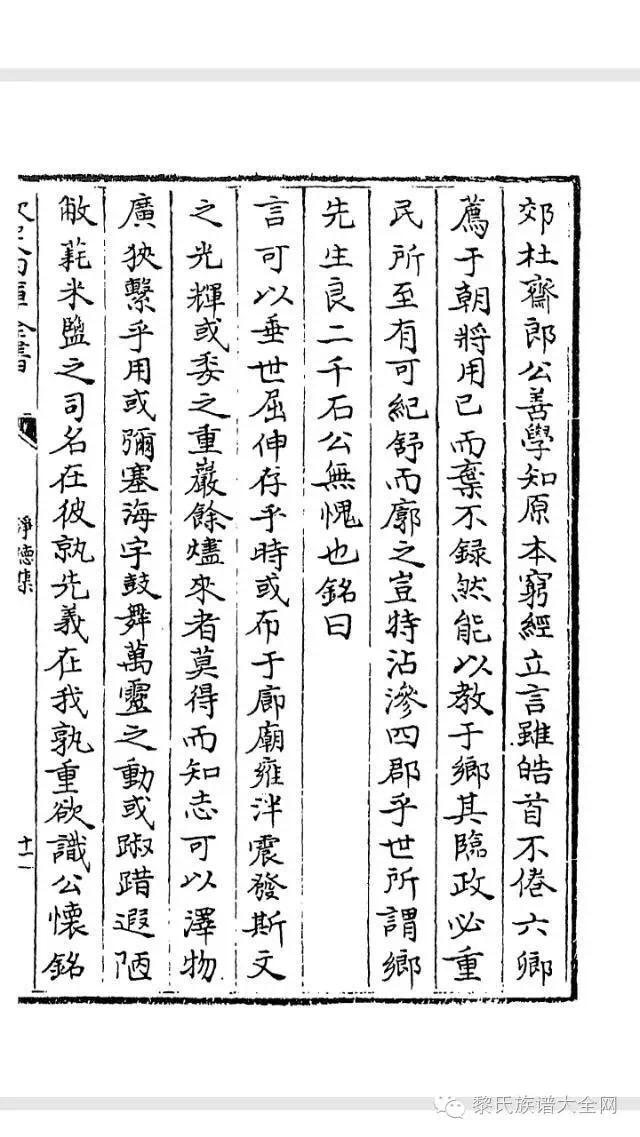 郊社齋郎公善學知原本窮經立言雖皓首不倦六卿
薦于朝將用已而棄不録然能以教于鄉其臨政必重
民所至有可紀舒而廓之豈特沾滲四郡乎世所謂鄉
先生良二千石公無愧也銘曰
言可以垂世屈伸存乎時或布于廊廟雍泮震發斯文
之光輝或委之重巖餘燼來者莫得而知志可以澤物
廣狹繫乎用或彌塞海宇鼓舞萬靈之動或踧踖遐陋
敝蓰米鹽之司名在彼孰先義在我孰重欲識公懷銘
全書
淨德集
十一
黎氏族谱大全网